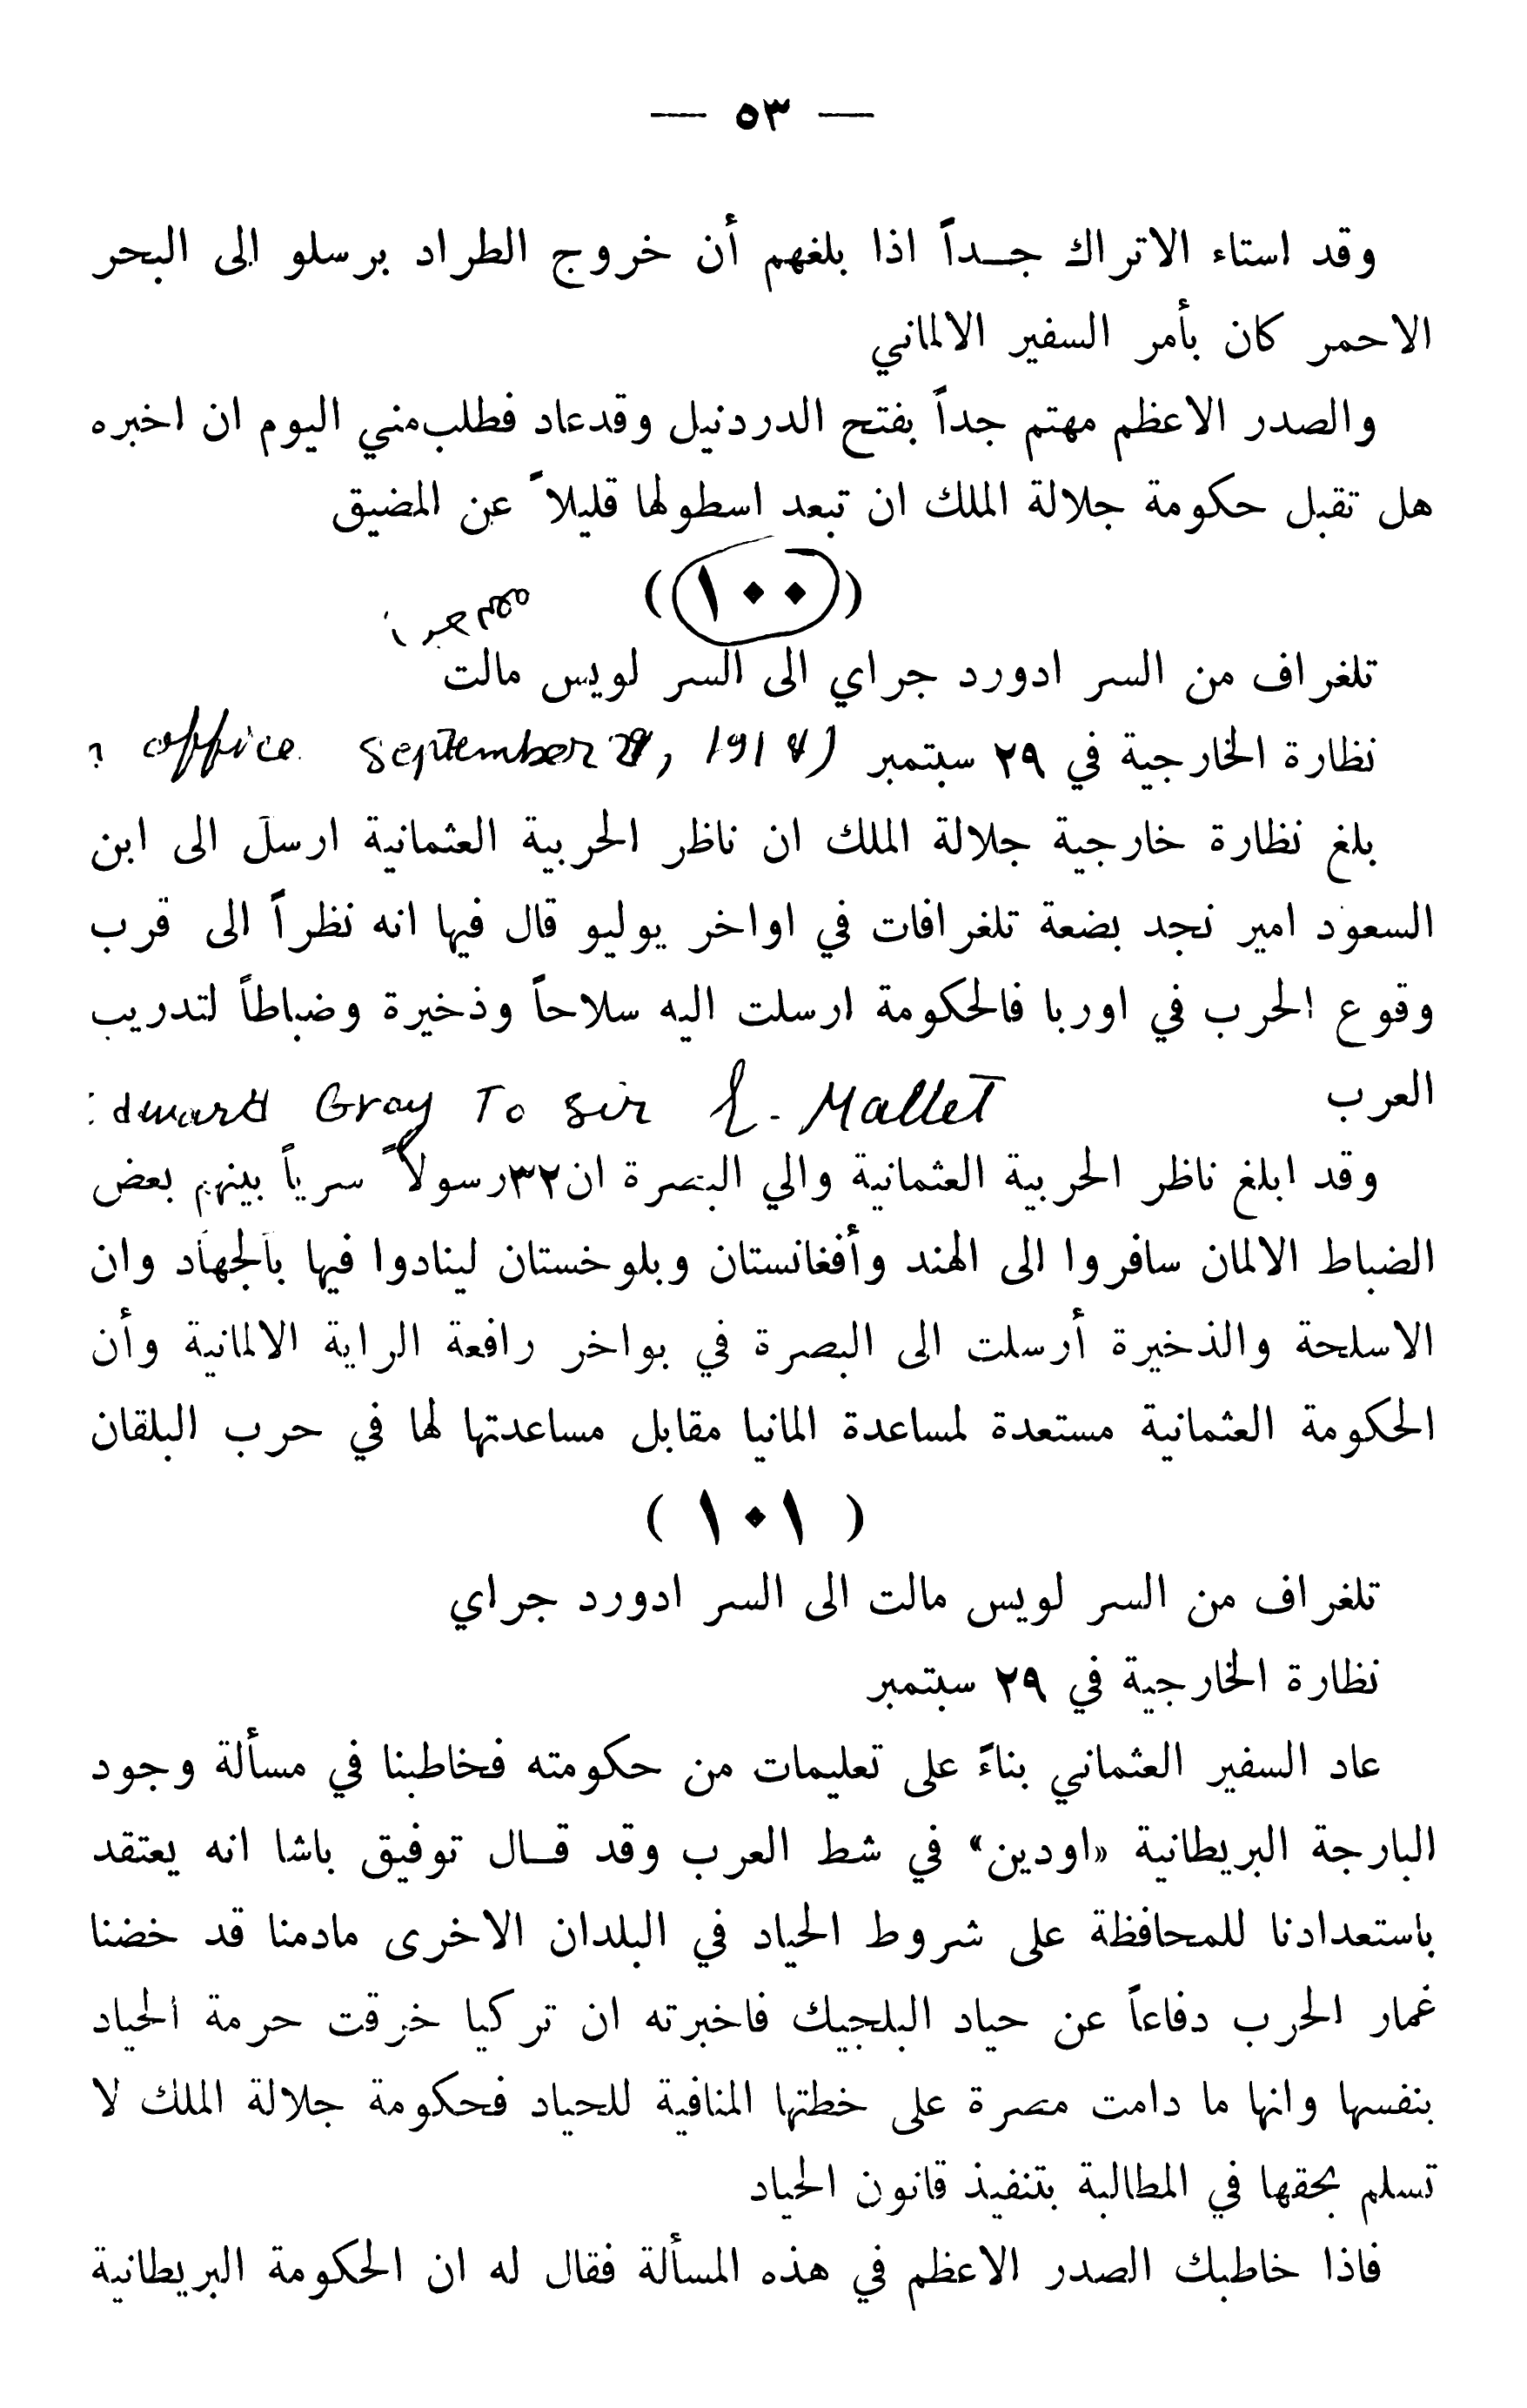 — ٥٣ —
وقد استاء الاتراك جـداً اذا بلغهم أن خروج الطراد برسلو الى البحر
الاحمر كان بأمر السفير الالماني
والصدر الاعظم مهتم جداً بفتح الدردنيل وقدعاد فطلب مني اليوم ان اخبره
هل تقبل حكومة جلالة الملك ان تبعد اسطولها قليلاً عن المضيق
(١٠٠)
مهم جدا
تلغراف من السر ادورد جراي الى السر لويس مالت
نظارة الخارجية في ٢٩ سبتمبر
office September 29, 1914)
بلغ نظارة خارجية جلالة الملك ان ناظر الحربية العثمانية ارسل الى ابن
السعود امير نجد بضعة تلغرافات في اواخر يوليو قال فيها انه نظراً الى قرب
وقوع الحرب في اوربا فالحكومة ارسلت اليه سلاحاً وذخيرة وضباطاً لتدريب
العرب
Edward Gray To Sir L. Mallet
وقد ابلغ ناظر الحربية العثمانية والي البصرة ان ٣٢ رسولاً سرياً بينهم بعض
الضباط الالمان سافروا الى الهند وأفغانستان وبلوخستان لينادوا فيها بالجهاد وان
الاسلحة والذخيرة أرسلت الى البصرة في بواخر رافعة الراية الالمانية وأن
الحكومة العثمانية مستعدة لمساعدة المانيا مقابل مساعدتها لها في حرب البلقان
( ١٠١ )
تلغراف من السر لويس مالت الى السر ادورد جراي
نظارة الخارجية في ٢٩ سبتمبر
عاد السفير العثماني بناءً على تعليمات من حكومته فخاطبنا في مسألة وجود
البارجة البريطانية «اودين» في شط العرب وقد قـال توفيق باشا انه يعتقد
باستعدادنا للمحافظة على شروط الحياد في البلدان الاخرى مادمنا قد خضنا
غمار الحرب دفاعاً عن حياد البلجيك فاخبرته ان تركيا خرقت حرمة الحياد
بنفسها وانها ما دامت مصرة على خطتها المنافية للحياد فحكومة جلالة الملك لا
تسلم بحقها في المطالبة بتنفيذ قانون الحياد
فاذا خاطبك الصدر الاعظم في هذه المسألة فقال له ان الحكومة البريطانية